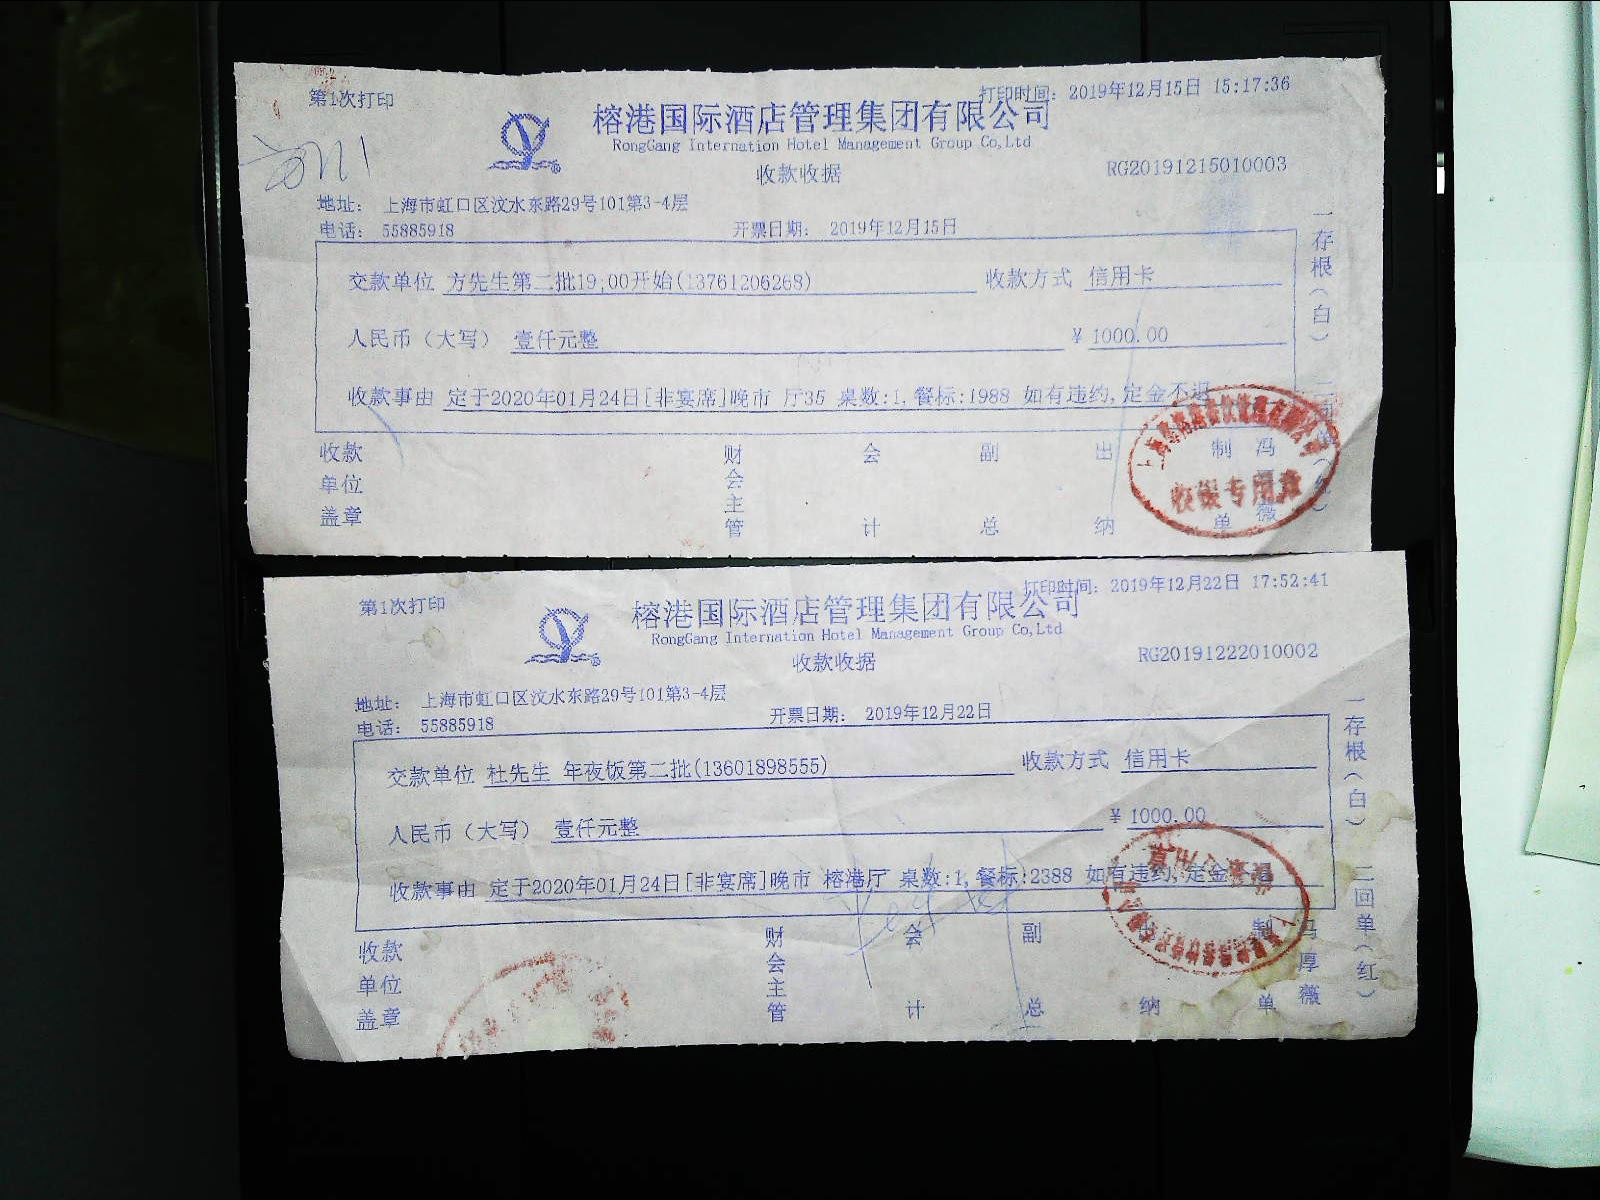 第1次打印
打印时间: 2019年12月15日 15:17:36
榕港国际酒店管理集团有限公司
RongGang Internation Hotel Management Group Co,Ltd
收款收据
RG20191215010003
地址: 上海市虹口区汶水东路29号101第3-4层
电话: 55885918
开票日期: 2019年12月15日
交款单位 方先生第二批19;00开始(13761206268)
收款方式 信用卡
人民币（大写） 壹仟元整
¥ 1000.00
收款事由 定于2020年01月24日[非宴席]晚市 厅35 桌数:1,餐标:1988 如有违约,定金不退
收款单位盖章
财会主管
会计
副总
出纳
制单
冯厚薇
一存根(白)
二回单(红)
收银专用章
第1次打印
打印时间: 2019年12月22日 17:52:41
榕港国际酒店管理集团有限公司
RongGang Internation Hotel Management Group Co,Ltd
收款收据
RG20191222010002
地址: 上海市虹口区汶水东路29号101第3-4层
电话: 55885918
开票日期: 2019年12月22日
交款单位 杜先生 年夜饭第二批(13601898555)
收款方式 信用卡
人民币（大写） 壹仟元整
¥ 1000.00
收款事由 定于2020年01月24日[非宴席]晚市 榕港厅 桌数:1,餐标:2388 如有违约,定金不退
收款单位盖章
财会主管
会计
副总
出纳
制单
冯厚薇
一存根(白)
二回单(红)